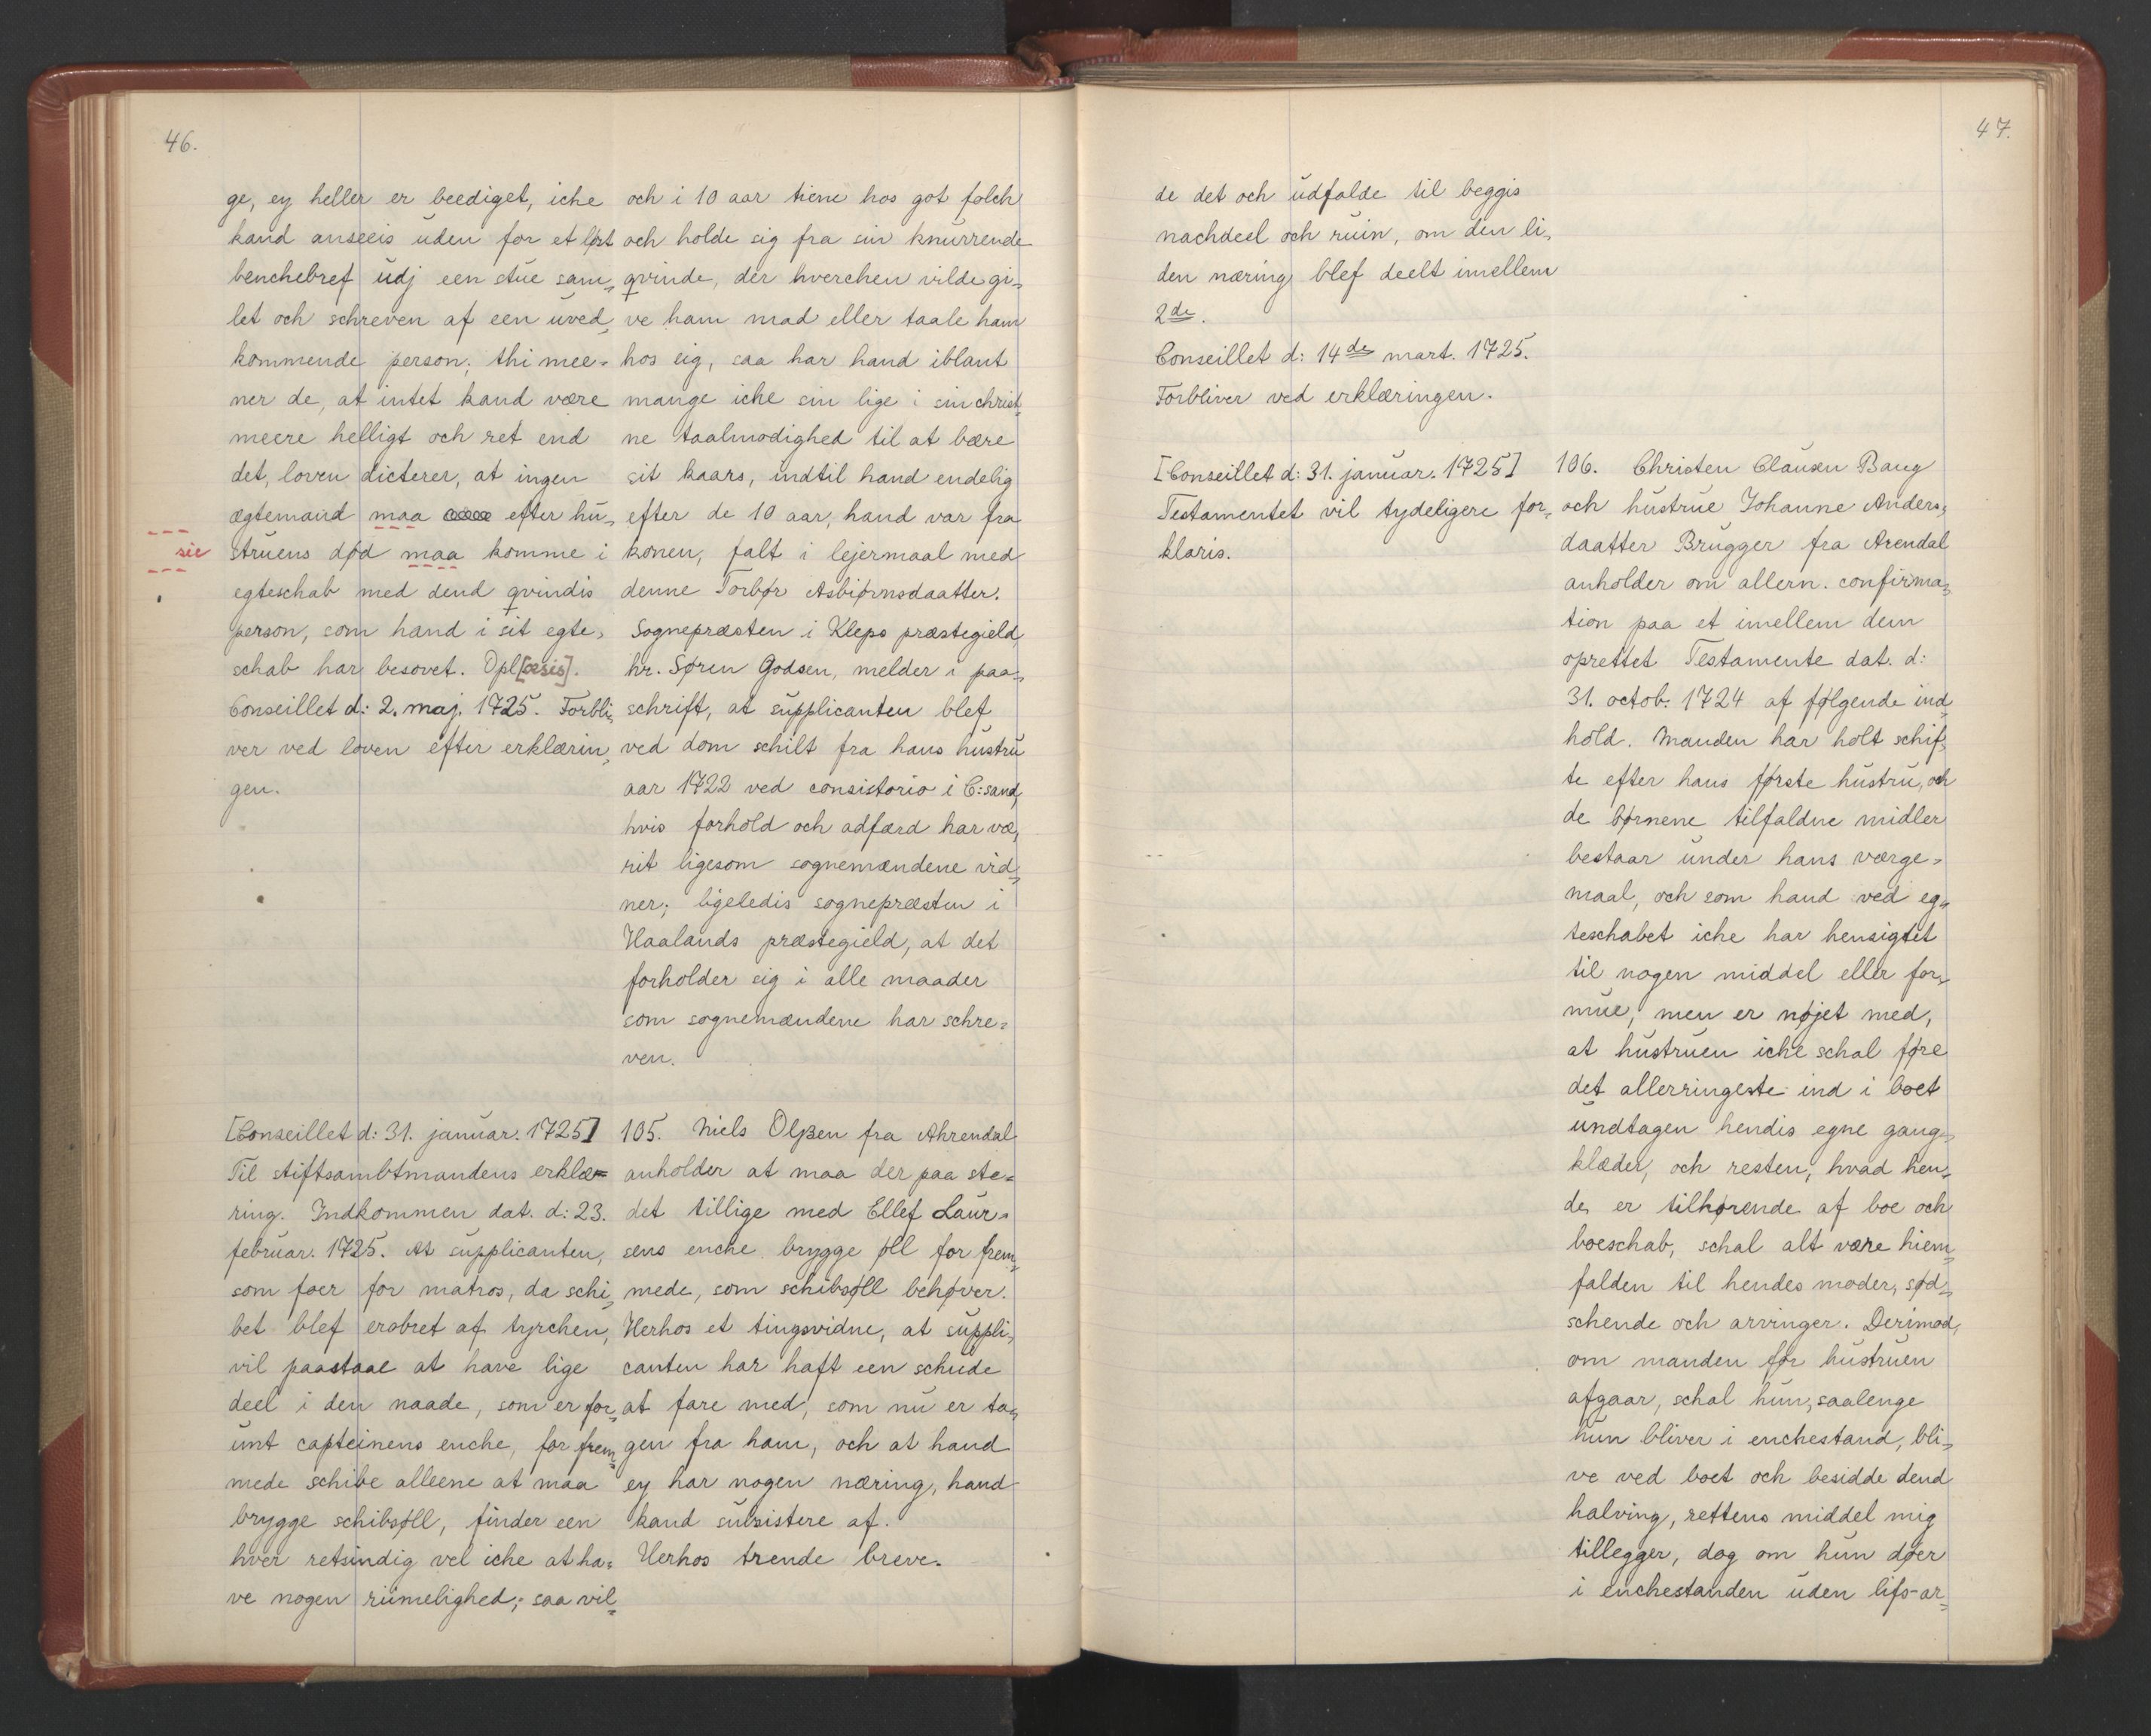 46.
ge, ey heller er beediget, iche
kand anseeis uden for et løst
benchebref udj een stue sam„
let och schreven af een uved„
kommende person; thi mee=
ner de, at intet kand være
meere helligt och ret end
det, loven dicterer, at ingen
ægtemand maa efter hu„
sic
struens død maa komme i
egteschab med dend qvindis
person, som hand i sit egte„
schab har besovet. Opl[æsis].
Conseillet d: 2. maj. 1725. Forbli„
ver ved loven efter erklærin„
gen.
[Conseillet d: 31. januar. 1725]
Til stiftsambtmandens erklæ=
ring. Indkommen dat. d: 23.
februar. 1725. At supplicanten,
som foer for matros, da schi„
bet blef erobret af tyrchen,
vil paastaae at have lige
deel i den naade, som er for„
unt capteinens enche, for frem„
mede schibe alleene at maa
brygge schibsøll, finder een
hver retsindig vel iche at ha=
ve nogen riimelighed; saa vil„
och i 10 aar tiene hos got folch
och holde sig fra sin knurrende
qvinde, der hverchen vilde gi„
ve ham mad eller taale ham
hos sig, saa har hand iblant
mange iche sin lige i sin christ„
ne taalmodighed til at bære
sit kaars, indtil hand endelig
efter de 10 aar, hand var fra
konen, falt i lejermaal med
denne Torbør Asbiørnsdaatter.
Sognepræsten i Kleps præstegield,
hr. Søren Godsen, melder i paa„
schrift, at supplicanten blef
ved dom schilt fra hans hustru
aar 1722 ved consistorio i C:sand,
hvis forhold och adfærd har væ„
rit ligesom sognemændene vid„
ner; ligeledis sognepræsten i
Haalands præstegield, at det
forholder sig i alle maader
som sognemændene har schre=
ven.
105. Niels Olßen fra Ahrendal
anholder at maa der paa ste=
det tillige med Ellef Laur„
sens enche brygge øll for frem„
mede, som schibsøll behøver.
Herhos et tingsvidne, at suppli„
canten har haft een schude
at fare med, som nu er ta„
gen fra ham, och at hand
ey har nogen næring, hand
kand subsistere af.
Herhos trende breve.
47.
de det och udfalde til beggis
nachdeel och ruin, om den li„
den næring blef deelt imellem
2de.
Conseillet d: 14de mart. 1725.
Forbliver ved erklæringen.
[Conseillet d: 31. januar. 1725]
Testamentet vil tydeligere for„
klaris.
106. Christen Clausen Baug
och hustrue Johanne Anders„
daatter Brugger fra Arendal
anholder om allern. confirma„
tion paa et imellem dem
oprettet Testamente dat. d:
31. octob. 1724 af følgende ind„
hold. Manden har holt schif„
te efter hans første hustru, och
de børnene tilfaldne midler
bestaar under hans værge=
maal, och som hand ved eg„
teschabet iche har hensigtet
til nogen middel eller for„
mue, men er nøjet med,
at hustruen iche schal føre
det allerringeste ind i boet
undtagen hendis egne gang„
klæder, och resten, hvad hen„
de er tilhørende af boe och
boeschab, schal alt være hiem„
falden til hendes moder, sød„
schende och arvinger. Derimod,
om manden før hustruen
afgaar, schal hun, saalenge
hun bliver i enchestand, bli„
ve ved boet och besidde dend
halving, rettens middel mig
tillegger, dog om hun døer
i enchestanden uden lifs-ar„